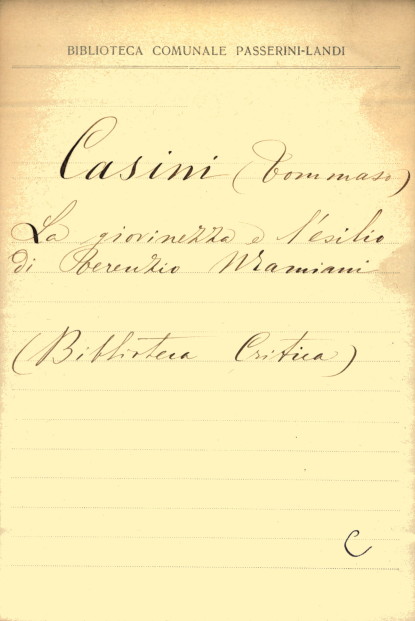 BIBLIOTECA COMUNALE PASSERINI-LANDI
Casini (Tommaso)
La giovinezza e l'esilio
di Terenzio Mamiani
(Biblioteca Critica)
C